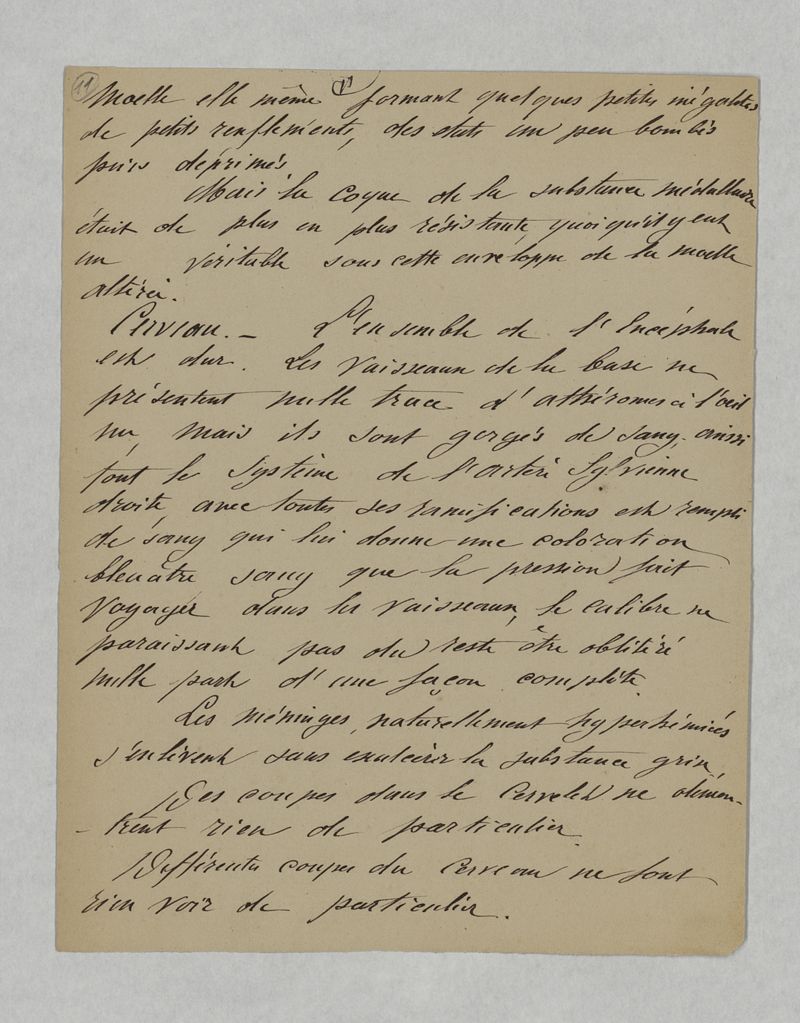 11 11
Moelle elle même formant quelques petites inégalités
de petits renflements, des états un peu bombés
puis déprimés
Mais la coque de la substance médullaire
était de plus en plus résistante quoiqu'il y eut
un véritable sous cette enveloppe de la moelle
altérée.
Cerveau. — L'ensemble de l'Encéphale
est dur. Les vaisseaux de la base ne
présentent nulle trace d'athéromes à l'oeil
nu, mais ils sont gorgés de sang, ainsi
tout le système de l'artère Sylvienne
droite, avec toutes ses ramifications est rempli
de sang qui lui donne une coloration
bleuâtre sang que la pression fait
voyager dans les vaisseaux, le calibre ne
paraissant pas du reste être oblitéré
nulle part d'une façon complète.
Les méninges, naturellement hyperhémiées
s'enlèvent sans exulcérer la substance grise,
Des coupes dans le Cervelet ne démon-
-trent rien de particulier
Différentes coupes du Cerveau ne font
rien voir de particulier.